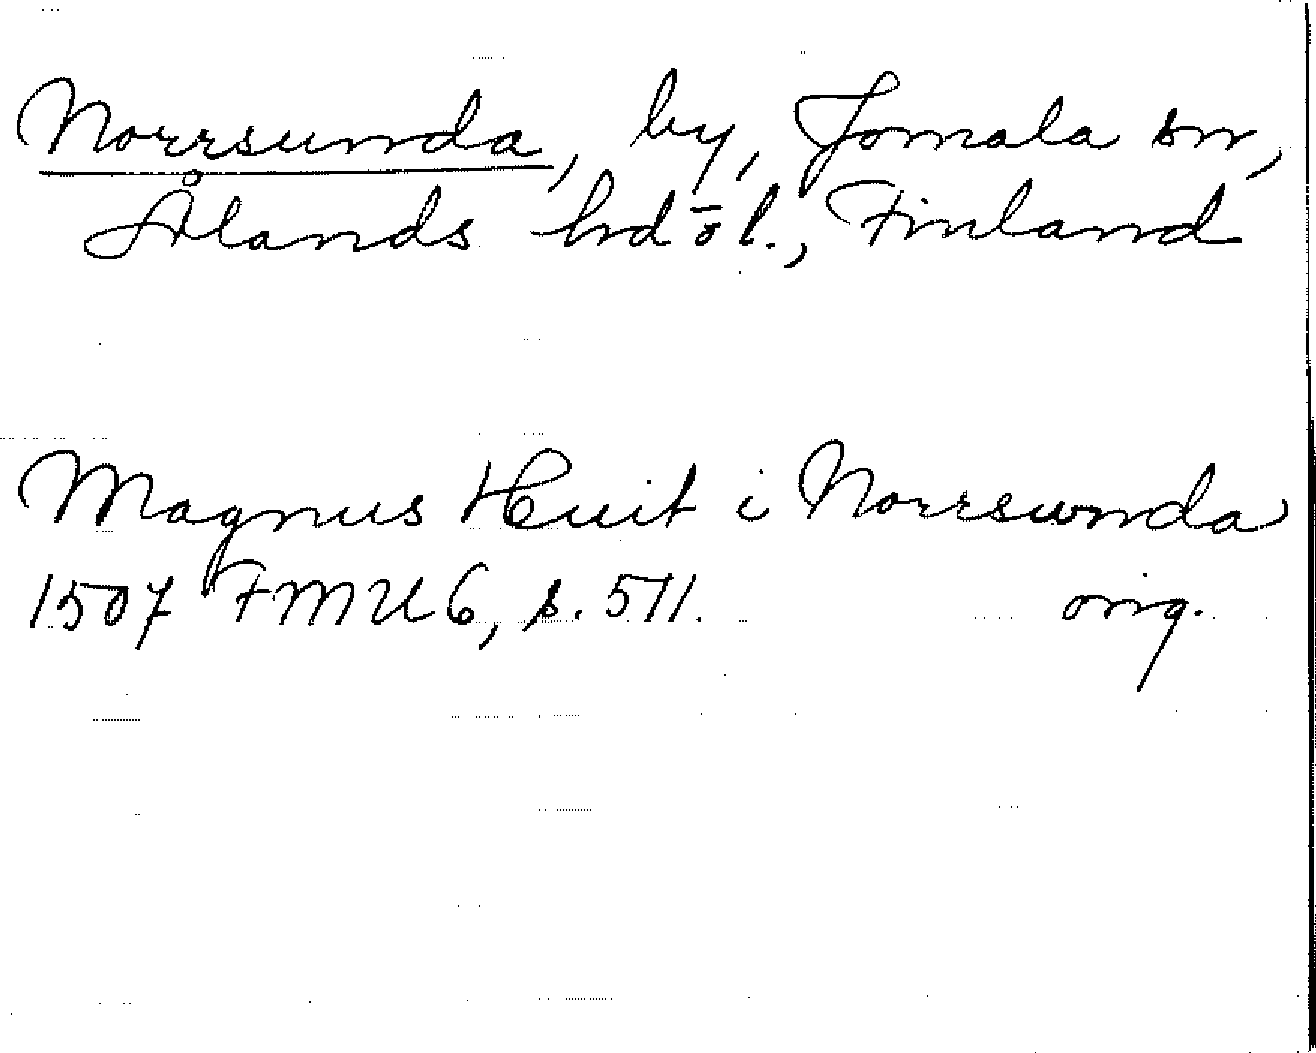 Norrsunda, by, Jomala sn,
Ålands hd o l., Finland
Magnus Huit i Norrsunda
1507 FMU 6, s. 511. orig.